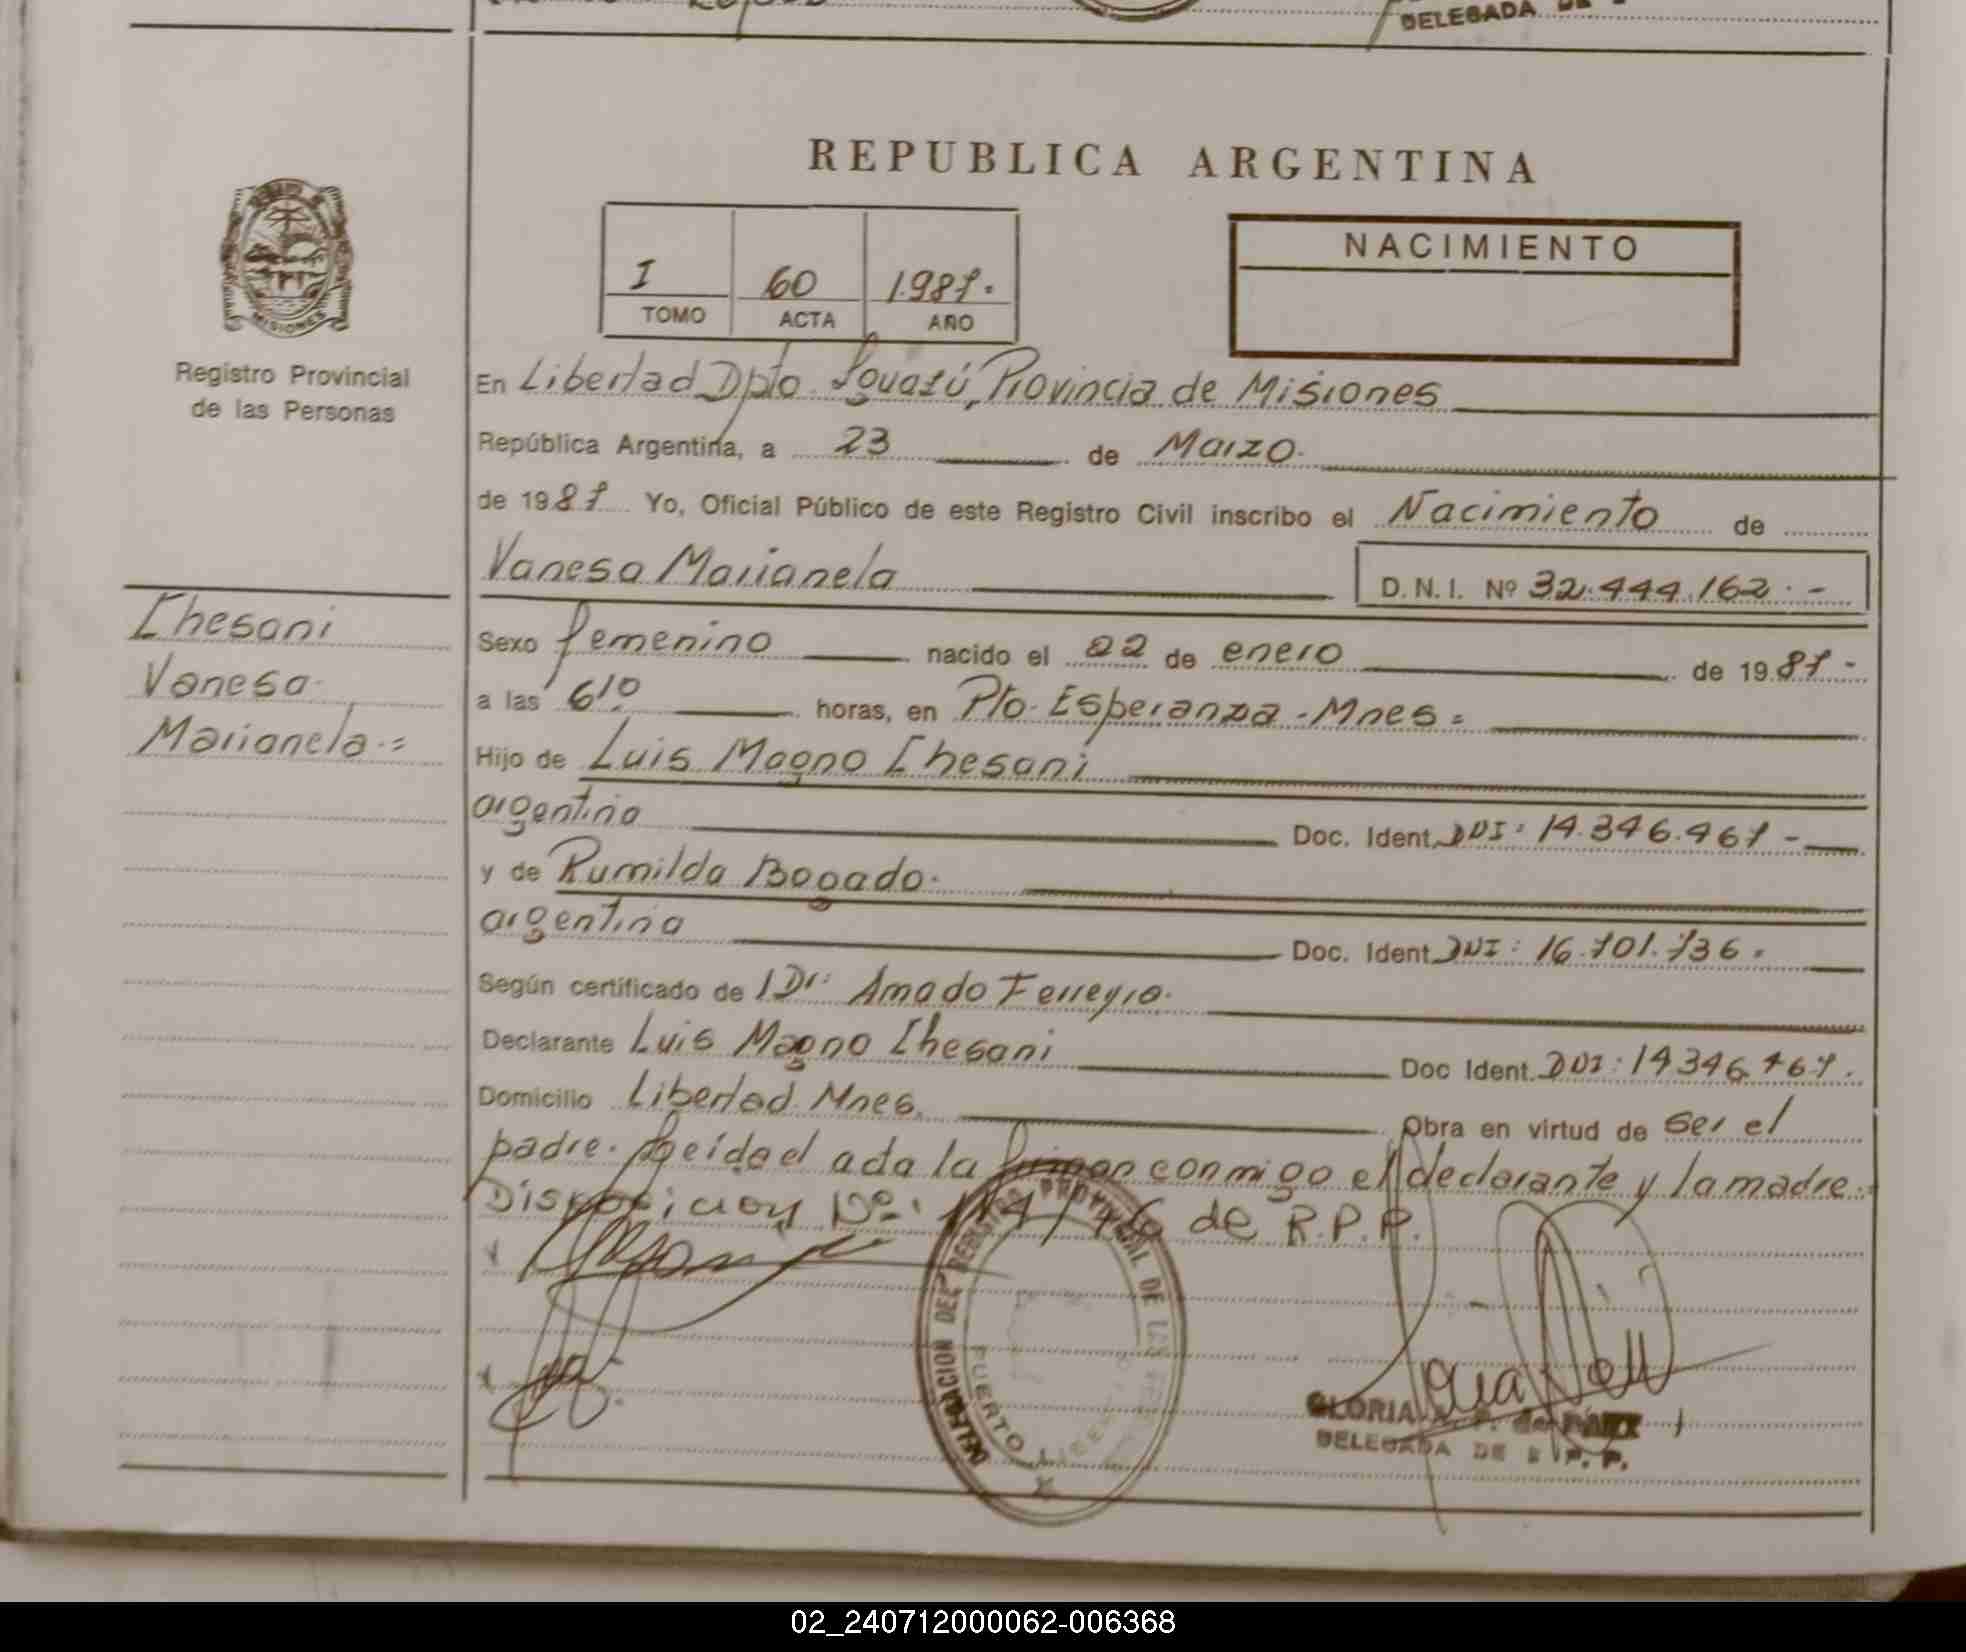 DELEGADA DE
REPUBLICA ARGENTINA
NACIMIENTO
I 60 1.987.
TOMO ACTA AÑO
MISIONES
Registro Provincial
de las Personas
En Libertad Dpto. Iguazú, Provincia de Misiones
República Argentina, a 23 de Marzo.
de 1987 Yo, Oficial Público de este Registro Civil inscribo el Nacimiento de
Vanesa Marianela D.N.I. Nº 32.444.162.-
Chesani
Vanesa
Marianela.=
Sexo femenino nacido el 22 de enero de 1987-
a las 6:10 horas, en Pto. Esperanza - Mnes=
Hijo de Luis Magno Chesani
argentina Doc. Ident. DNI: 14.346.467-
y de Rumilda Bogado.
argentina Doc. Ident DNI: 16.701.736.
Según certificado de Dr. Amado Ferreyra.
Declarante Luis Magno Chesani Doc Ident. DNI: 14346.467.
Domicilio Libertad Mnes. Obra en virtud de ser el
padre. Leída el acta la firman conmigo el declarante y la madre.
Disposicion Nº de R.P.P.
DELEGACION DEL REGISTRO PROVINCIAL DE LAS
PUERTO LIBERTAD
GLORIA
DELEGADA DE R.P.P.
02_240712000062-006368